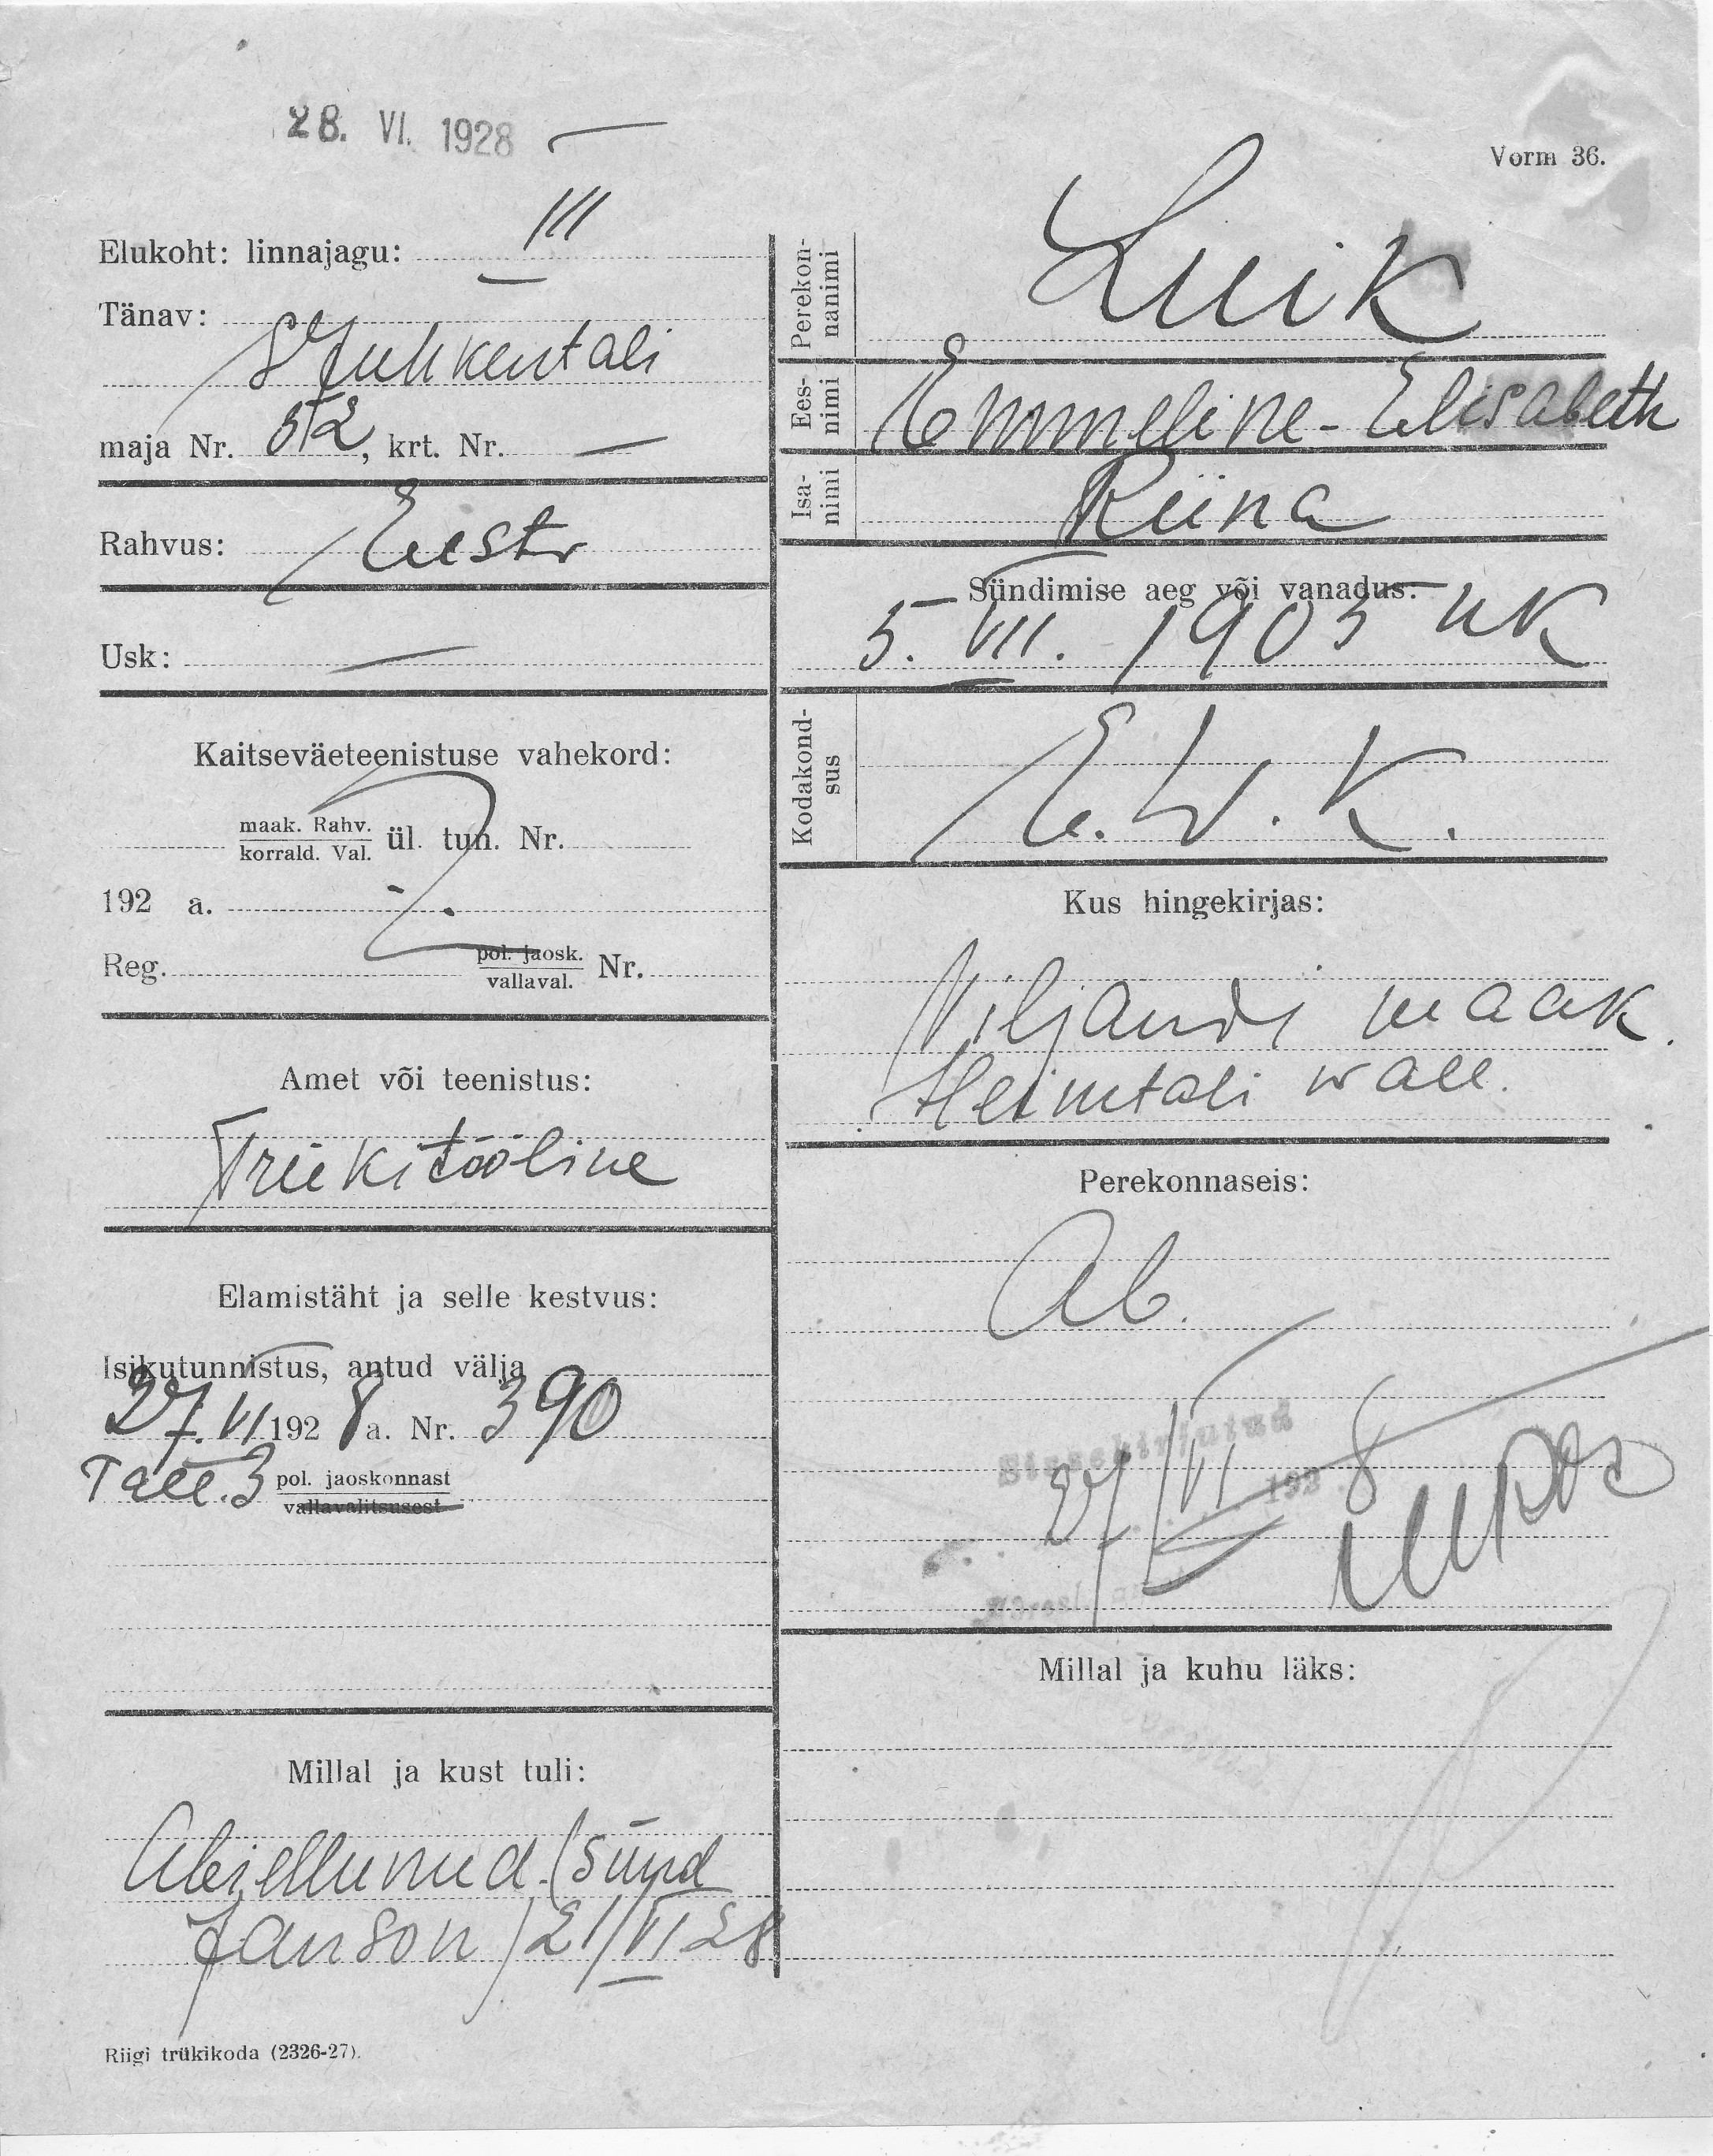 28. VI. 1928
Vorm 36.
Elukoht: linnajagu: III
Tänav:
Juhkentali
maja Nr. 52, krt. Nr. —
Rahvus: Eesti
Usk: —
Kaitseväeteenistuse vahekord:
maak. Rahv.
korrald. Val. ül. tun. Nr.
192 a.
Reg. pol. jaosk.
vallaval. Nr.
Amet või teenistus:
Trükitööline
Elamistäht ja selle kestvus:
Isikutunnistus, antud välja
27. VI 192 8 a. Nr. 390
Tall. 3 pol. jaoskonnast
vallavalitsusest
Millal ja kust tuli:
Abiellunud. (sünd
Janson) 21/VI 28
Riigi trükikoda (2326-27).
Perekon-
nanimi
Luik
Ees-
nimi
Emmeline-Elisabeth
Isa-
nimi
Riina
Sündimise aeg või vanadus:
5. VII. 1905 uk
Kodakond-
sus
E. W. K.
Kus hingekirjas:
Viljandi maak.
Heimtali wall.
Perekonnaseis:
Ab.
Sissekirjutud
27/VI 192 8
Millal ja kuhu läks: